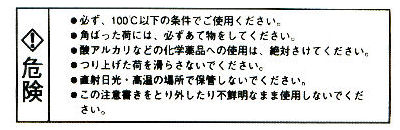 危険
●必ず、100℃以下の条件でご使用ください。
●角ばった荷には、必ずあて物をしてください。
●酸アルカリなどの化学薬品への使用は、絶対さけてください。
●つり上げた荷を滑らさないでください。
●直射日光・高温の場所で保管しないでください。
●この注意書きをとり外したり不鮮明なまま使用しないでくだ
さい。